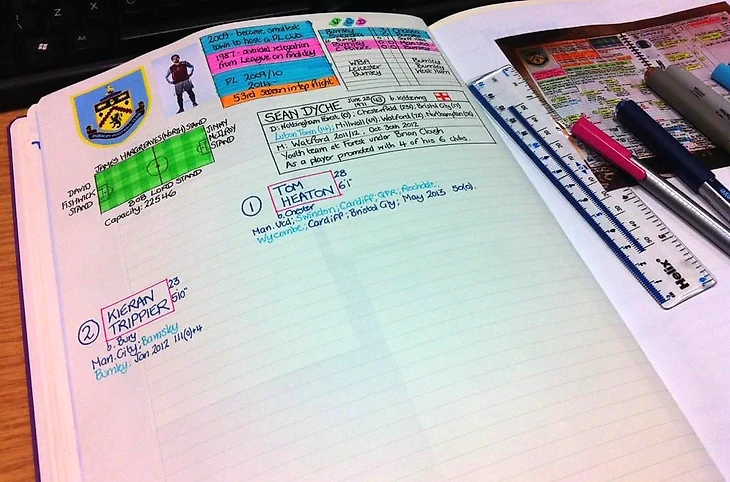 2009 - became smallest
town to host a PL club
1987 - avoided relegation
from League on final day
PL 2009/10
2014-
53rd season in top flight
W D
Burnley
WBA
Leicester
Burnley
Burnley
Burnley
West Ham
JAMES HARGREAVES (NORTH) STAND
JIMMY
McILROY
STAND
DAVID
FISHWICK
STAND
BOB LORD STAND
Capacity: 22546
SEAN DYCHE June 28 b. Kettering
1971
D: Nottingham Forest (0); Chesterfield; Bristol City
Luton Town; Millwall; Watford; Northampton
M: Watford 2011/12, Oct 30th 2012
Youth team at Forest under Brian Clough
As a player promoted with 4 of his 6 clubs.
1 TOM
HEATON
28
6'1"
b. Chester
Man. Utd; Swindon; Cardiff; QPR; Rochdale;
Wycombe; Cardiff; Bristol City; May 2013 50(0).
2 KIERAN
TRIPPIER
23
5'10"
b. Bury
Man. City; Barnsley
Burnley; Jan 2012 111(0)+4
Helix